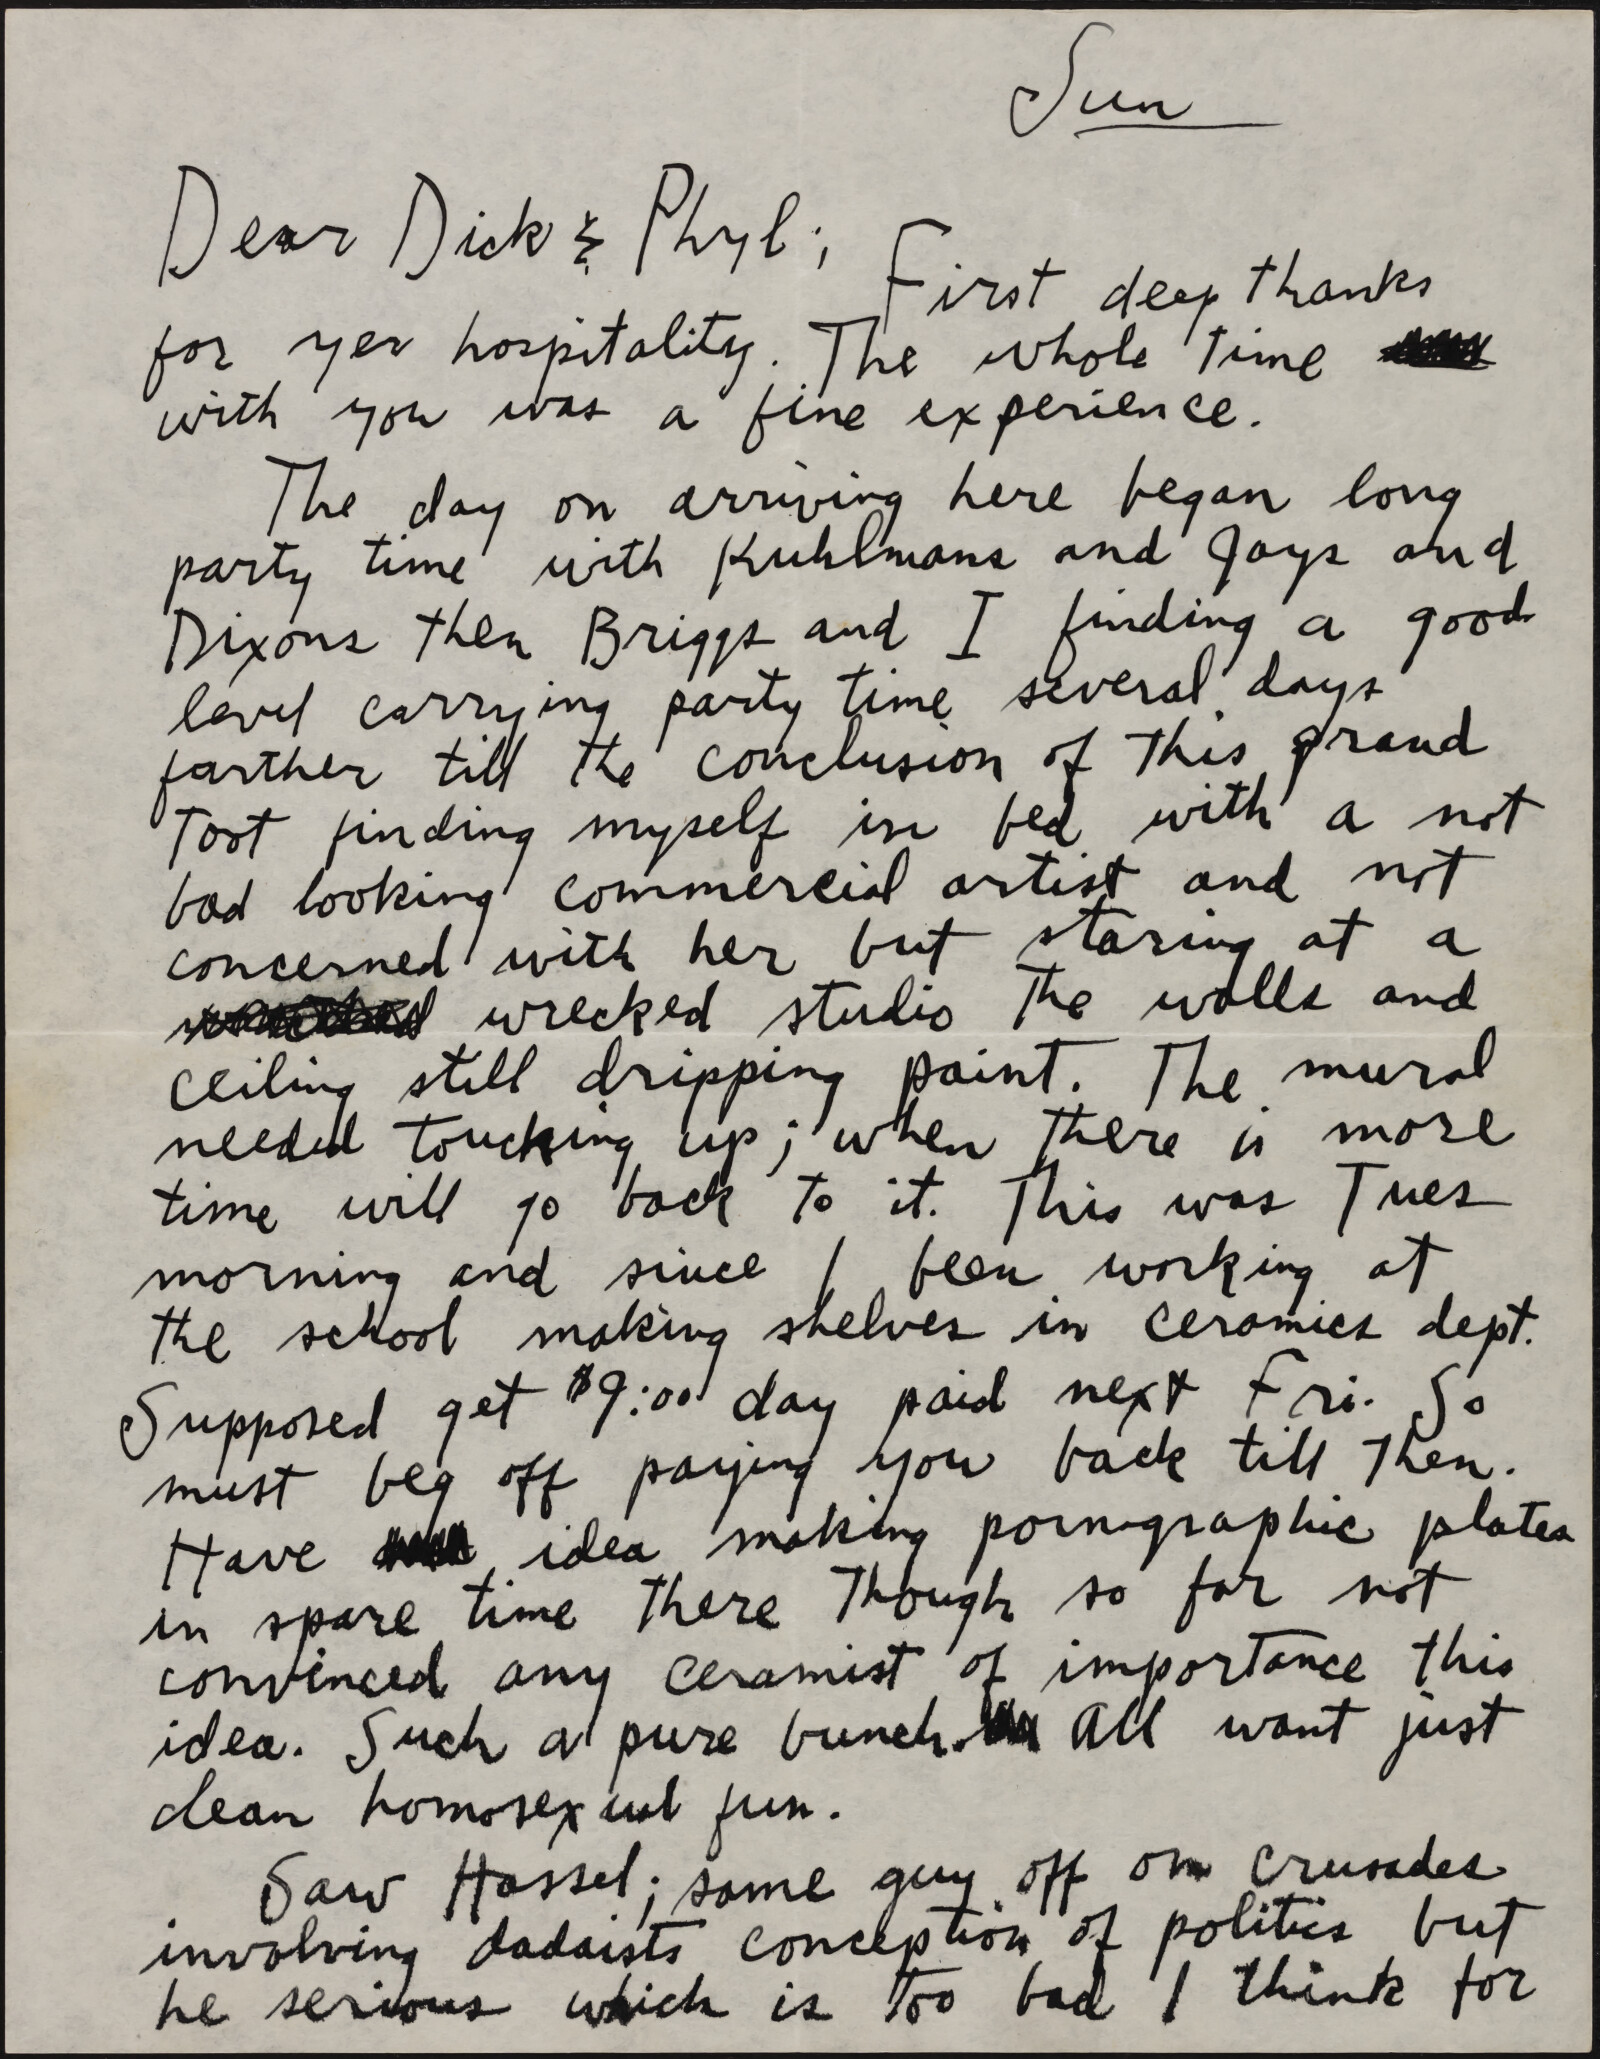 Sun
Dear Dick & Phyl; First deep thanks
for yer hospitality. The whole time
with you was a fine experience.
The day on arriving here began long
party time with Kuhlmans and Jays and
Dixons then Briggs and I finding a good
level carrying party time several days
farther till the conclusion of this grand
Toot finding myself in bed with a not
bad looking commercial artist and not
concerned with her but staring at a
wrecked studio the walls and
ceiling still dripping paint. The mural
needed touching up; when there is more
time will go back to it. This was Tues
morning and since I been working at
the school making shelves in ceramics dept.
Supposed get $9:00 day paid next Fri. So
must beg off paying you back till then.
Have idea making pornographic plates
in spare time there though so far not
convinced any ceramist of importance this
idea. Such a pure bunch. All want just
clean homosexual fun.
Saw Hassel; same guy off on crusades
involving dadaists conception of politics but
he serious which is too bad I think for